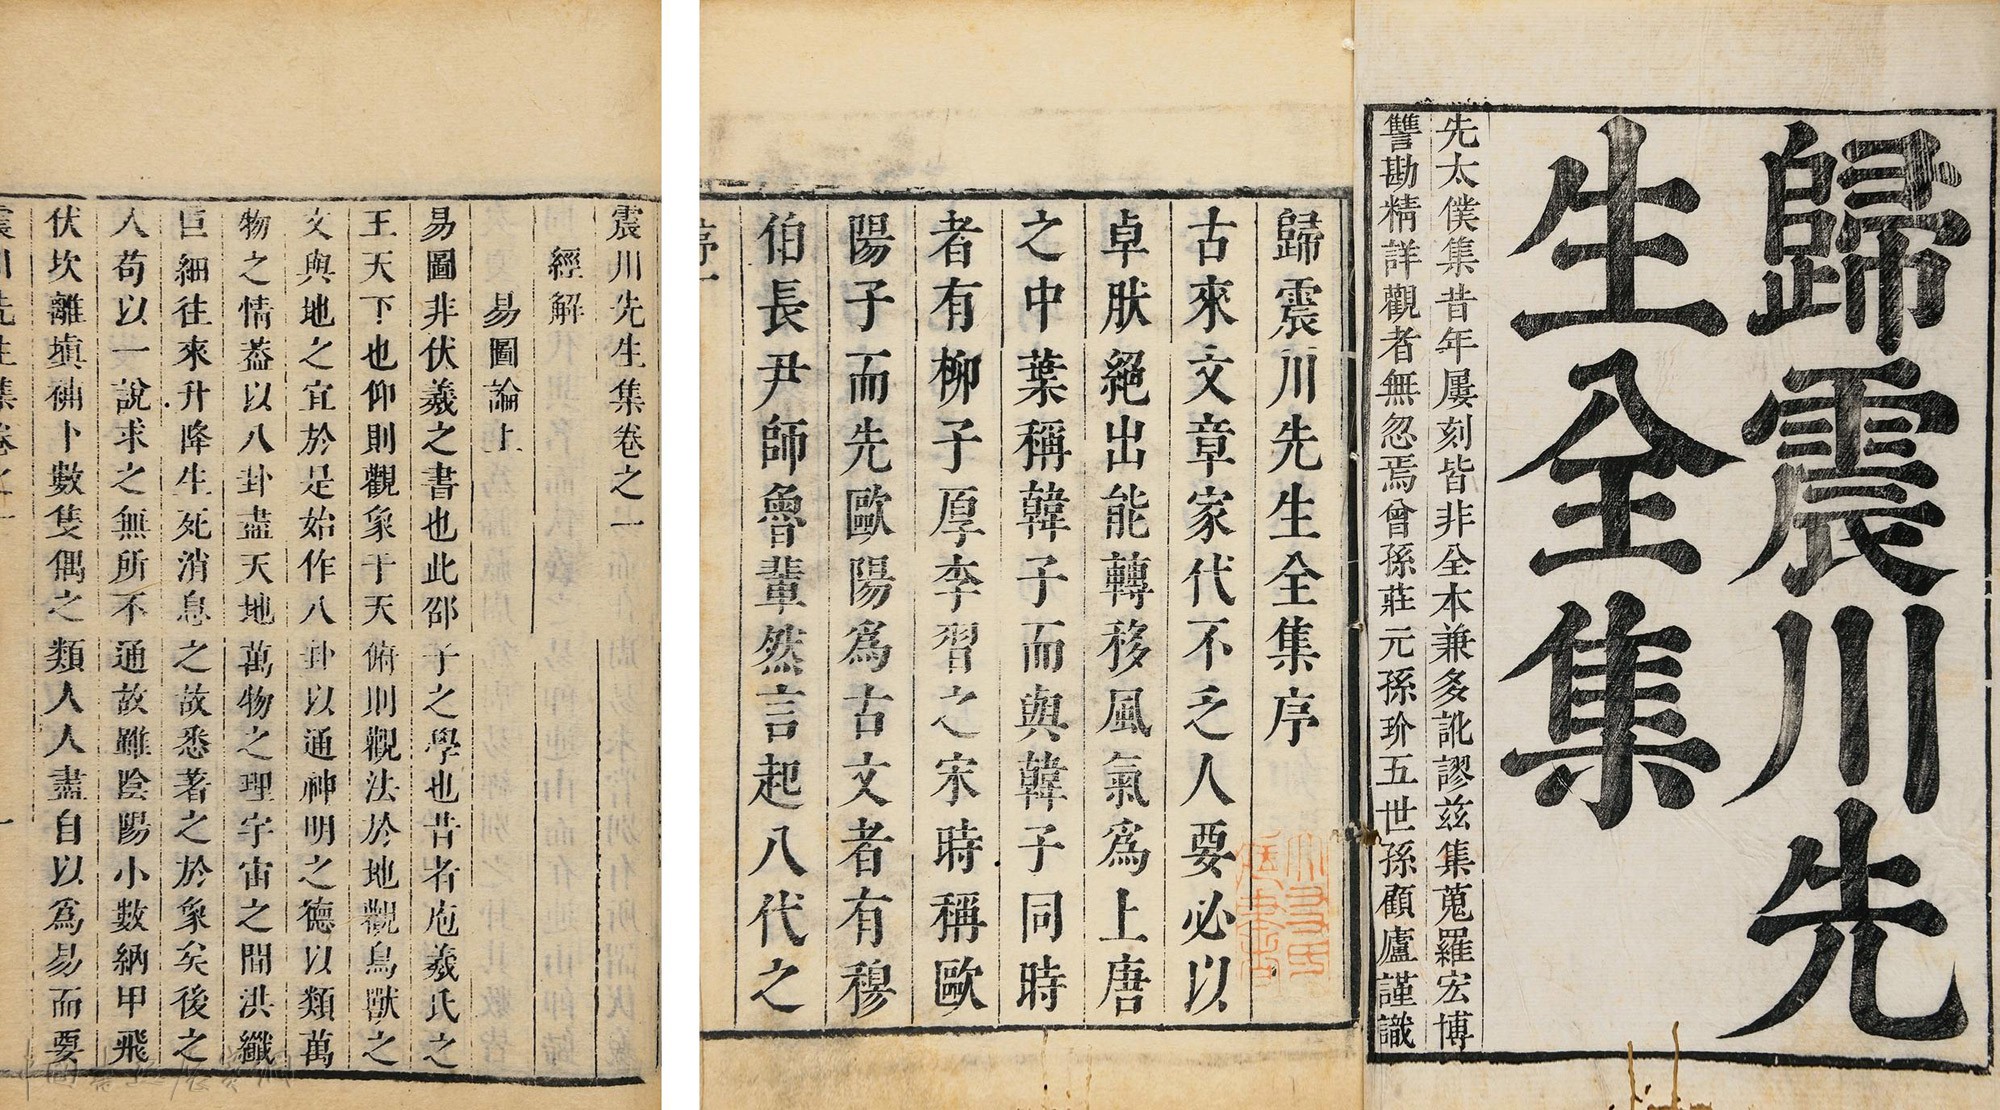 歸震川先
生全集
先太僕集昔年屢刻皆非全本兼多訛謬兹集蒐羅宏博
讐勘精詳觀者無忽焉曾孫莊元孫玠五世孫顧廬謹識
歸震川先生全集序
古來文章家代不乏人要必以
卓肰絕出能轉移風氣爲上唐
之中葉稱韓子而與韓子同時
者有柳子厚李習之宋時稱歐
陽子而先歐陽爲古文者有穆
伯長尹師魯輩然言起八代之
序一
震川先生集卷之一
經解
易圖論上
易圖非伏羲之書也此邵子之學也昔者庖羲氏之
王天下也仰則觀象于天俯則觀法於地觀鳥獸之
文與地之宜於是始作八卦以通神明之德以類萬
物之情葢以八卦盡天地萬物之理宇宙之間洪纖
巨細往來升降生死消息之故悉著之於象矣後之
人苟以一說求之無所不通故雖陰陽小數納甲飛
伏坎離填補卜數隻偶之類人人盡自以爲易而要
震川先生集卷之一 一